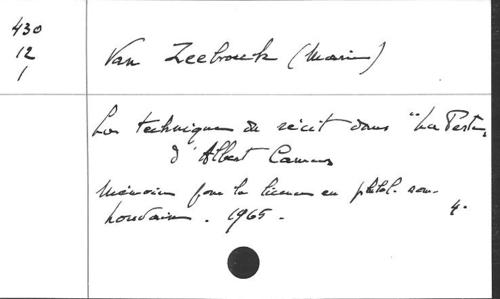 430
12
1
Van Zeebrouck (Marie)
Les techniques du récit dans "La Peste"
d'Albert Camus
Mémoire pour la licence en philol. rom.
Louvain. 1965.
4°